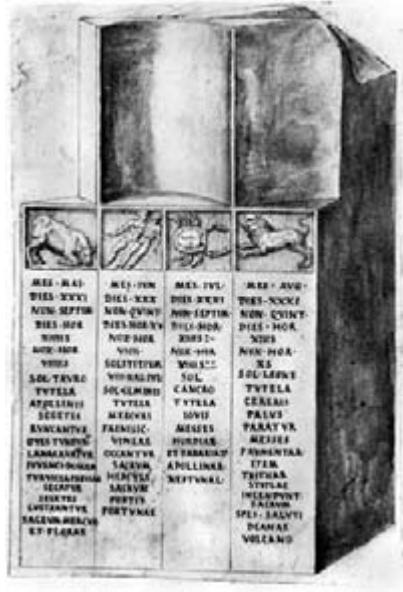 MES · MAI ·
DIES · XXXI
NON · SEPTIM
DIES · HOR
NOX · HOR
VIIIIS
SOL · TAVRO
TVTELA
APOLLINIS
SEGETES
RVNCANTVR
OVES
LANA LAVATVR
IVVENCI
SECATVR
SEGETES
LVSTRANTVR
SACRVM · MERCVR
ET · FLORAE
MES · IVN
DIES · XXX
NON · QVINT ·
DIES · HOR · XV
NOX · HOR
VIIII ·
SOLSTITIVM
SOL · GEMINIS
TVTELA
MERCVRI
FAENISIC ·
VINEAE
OCCANTVR
SACRVM
HERCVLI
FORTIS
FORTVNAE
MES · IVL ·
DIES · XXXI
NON · SEPTIM
DIES · HOR ·
NOX · HOR
SOL
CANCRO
TVTELA
IOVIS
MESSES
HORDIAR
ET FABARIAE
APOLLINAR ·
NEPTVNAL ·
MES · AVG ·
DIES · XXXI
NON · QVINT ·
DIES · HOR
XIIIS
NOX · HOR ·
XS
SOL · LEONE
TVTELA
CERERIS
PALVS
PARATVR
MESSES
FRVMENTAR
ITEM
TRITICAR
STVPLAE
INCENDVNT
SACRVM
SPEI · SALVTI
DEANAE
VOLCANO